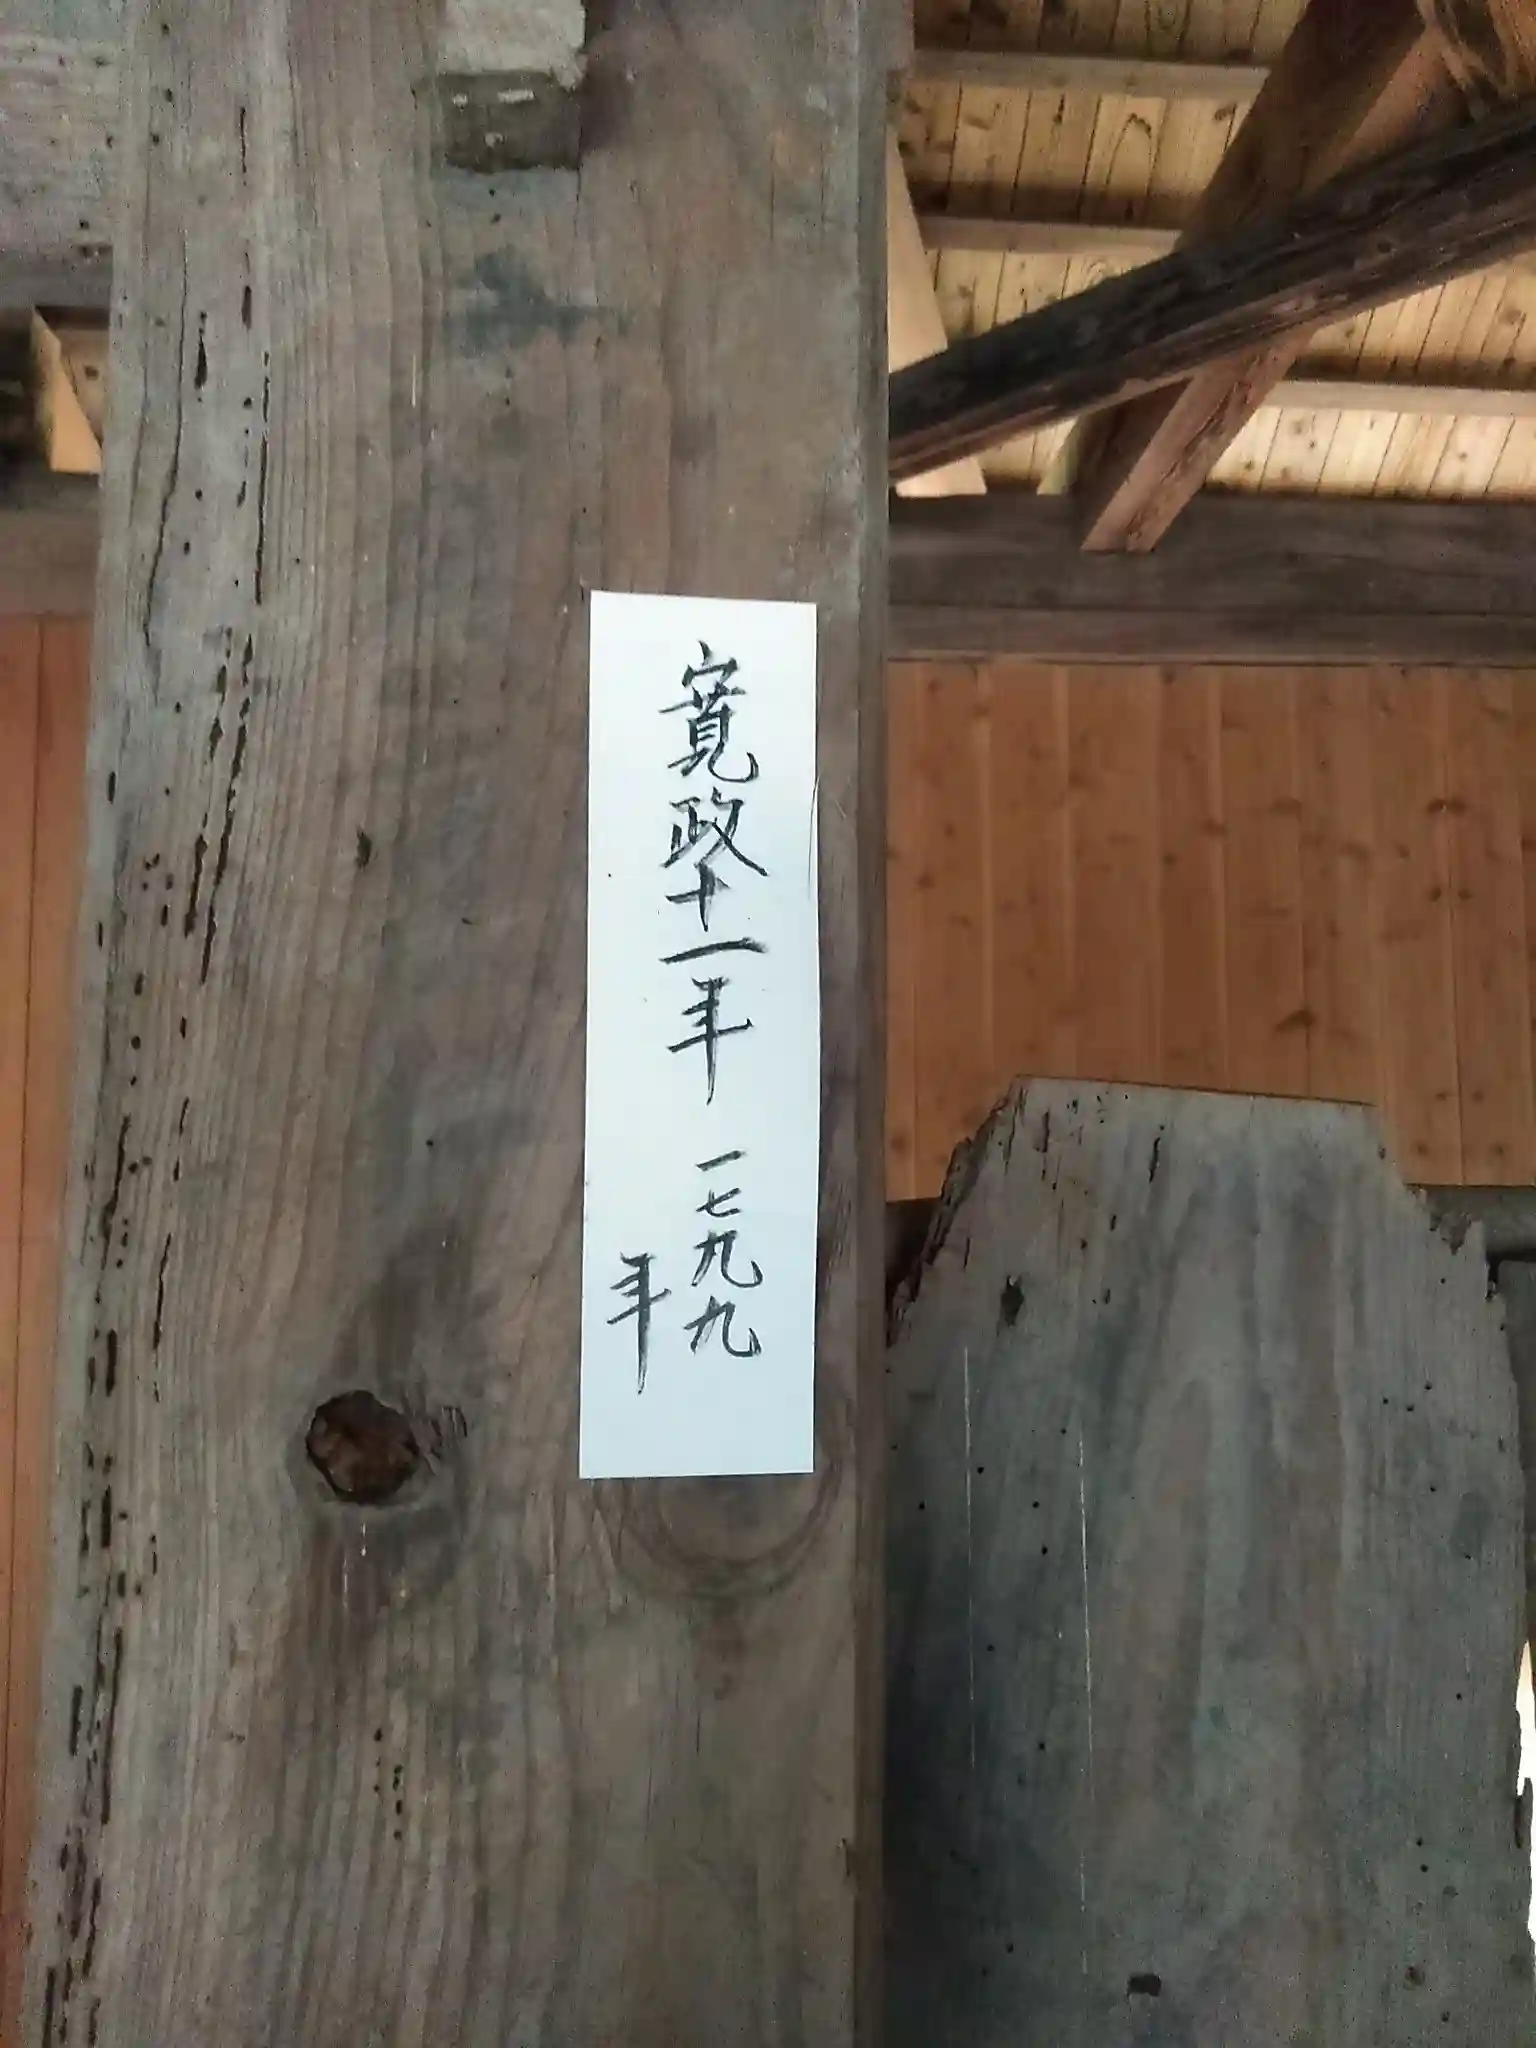 寛政十一年 一七九九
年